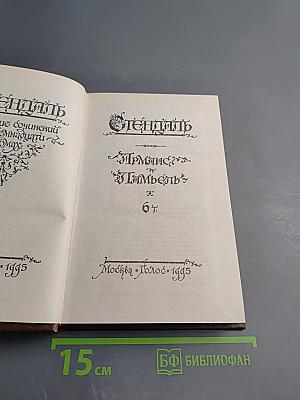 ЕНДАЛЬ
ие сочинений
мнадцати
омах
1995
Стендаль
Арманс
Ламьель
6 т.
Москва • Голос • 1995
15 см
БФ БИБЛИОФАН